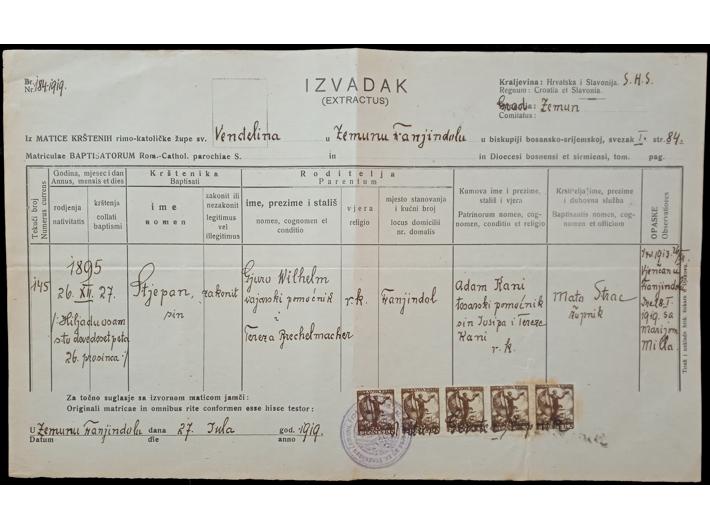 Br. Nr. 184.1919.
IZVADAK
(EXTRACTUS)
Kraljevina: Hrvatska i Slavonija. S.H.S.
Regnum: Croatia et Slavonia.
Grad Zemun
Comitatus:
Iz MATICE KRŠTENIH rimo-katoličke župe sv. Vendelina u Zemunu Franjindolu u biskupiji bosansko-srijemskoj, svezak I. str. 84.
Matriculae BAPTISATORUM Rom.-Cathol. parochiae S. in in Dioecesi bosnensi et sirmiensi, tom. pag.
Tekući broj
Numerus currens
Godina, mjesec i dan
Annus, mensis et dies
rodjenja
nativitatis
krštenja
collati
baptismi
Krštenika
Baptisati
ime
nomen
zakonit ili
nezakonit
legitimus
vel
illegitimus
Roditelja
Parentum
ime, prezime i stališ
nomen, cognomen et
conditio
vjera
religio
mjesto stanovanja
i kućni broj
locus domicilii
nr. domalis
Kumova ime i prezime,
stališ i vjera
Patrinorum nomen, cog-
nomen, conditio et religio
Krstitelja ime, prezime
i duhovna služba
Baptisantis nomen, cog-
nomen et officium
OPASKE
Observationes
145
1895
26. XII. 27.
/: Hiljadu osam
sto devedeset peta
26. prosinca :/
Stjepan,
sin
zakonit
Gjuro Wilhelm
i
Tereza Brechelmacher
r.k.
Franjindol
Adam Kani
sin Josipa i Tereze
Kani
r.k.
Mato Strac
župnik
Vjenčan u
Franjindolu
1919. sa
Marijom
Milla
Za točno suglasje sa izvornom maticom jamči:
Originali matricae in omnibus rite conformem esse hisce testor:
U Zemunu Franjindolu dana 27. Jula god. 1919.
Datum die anno